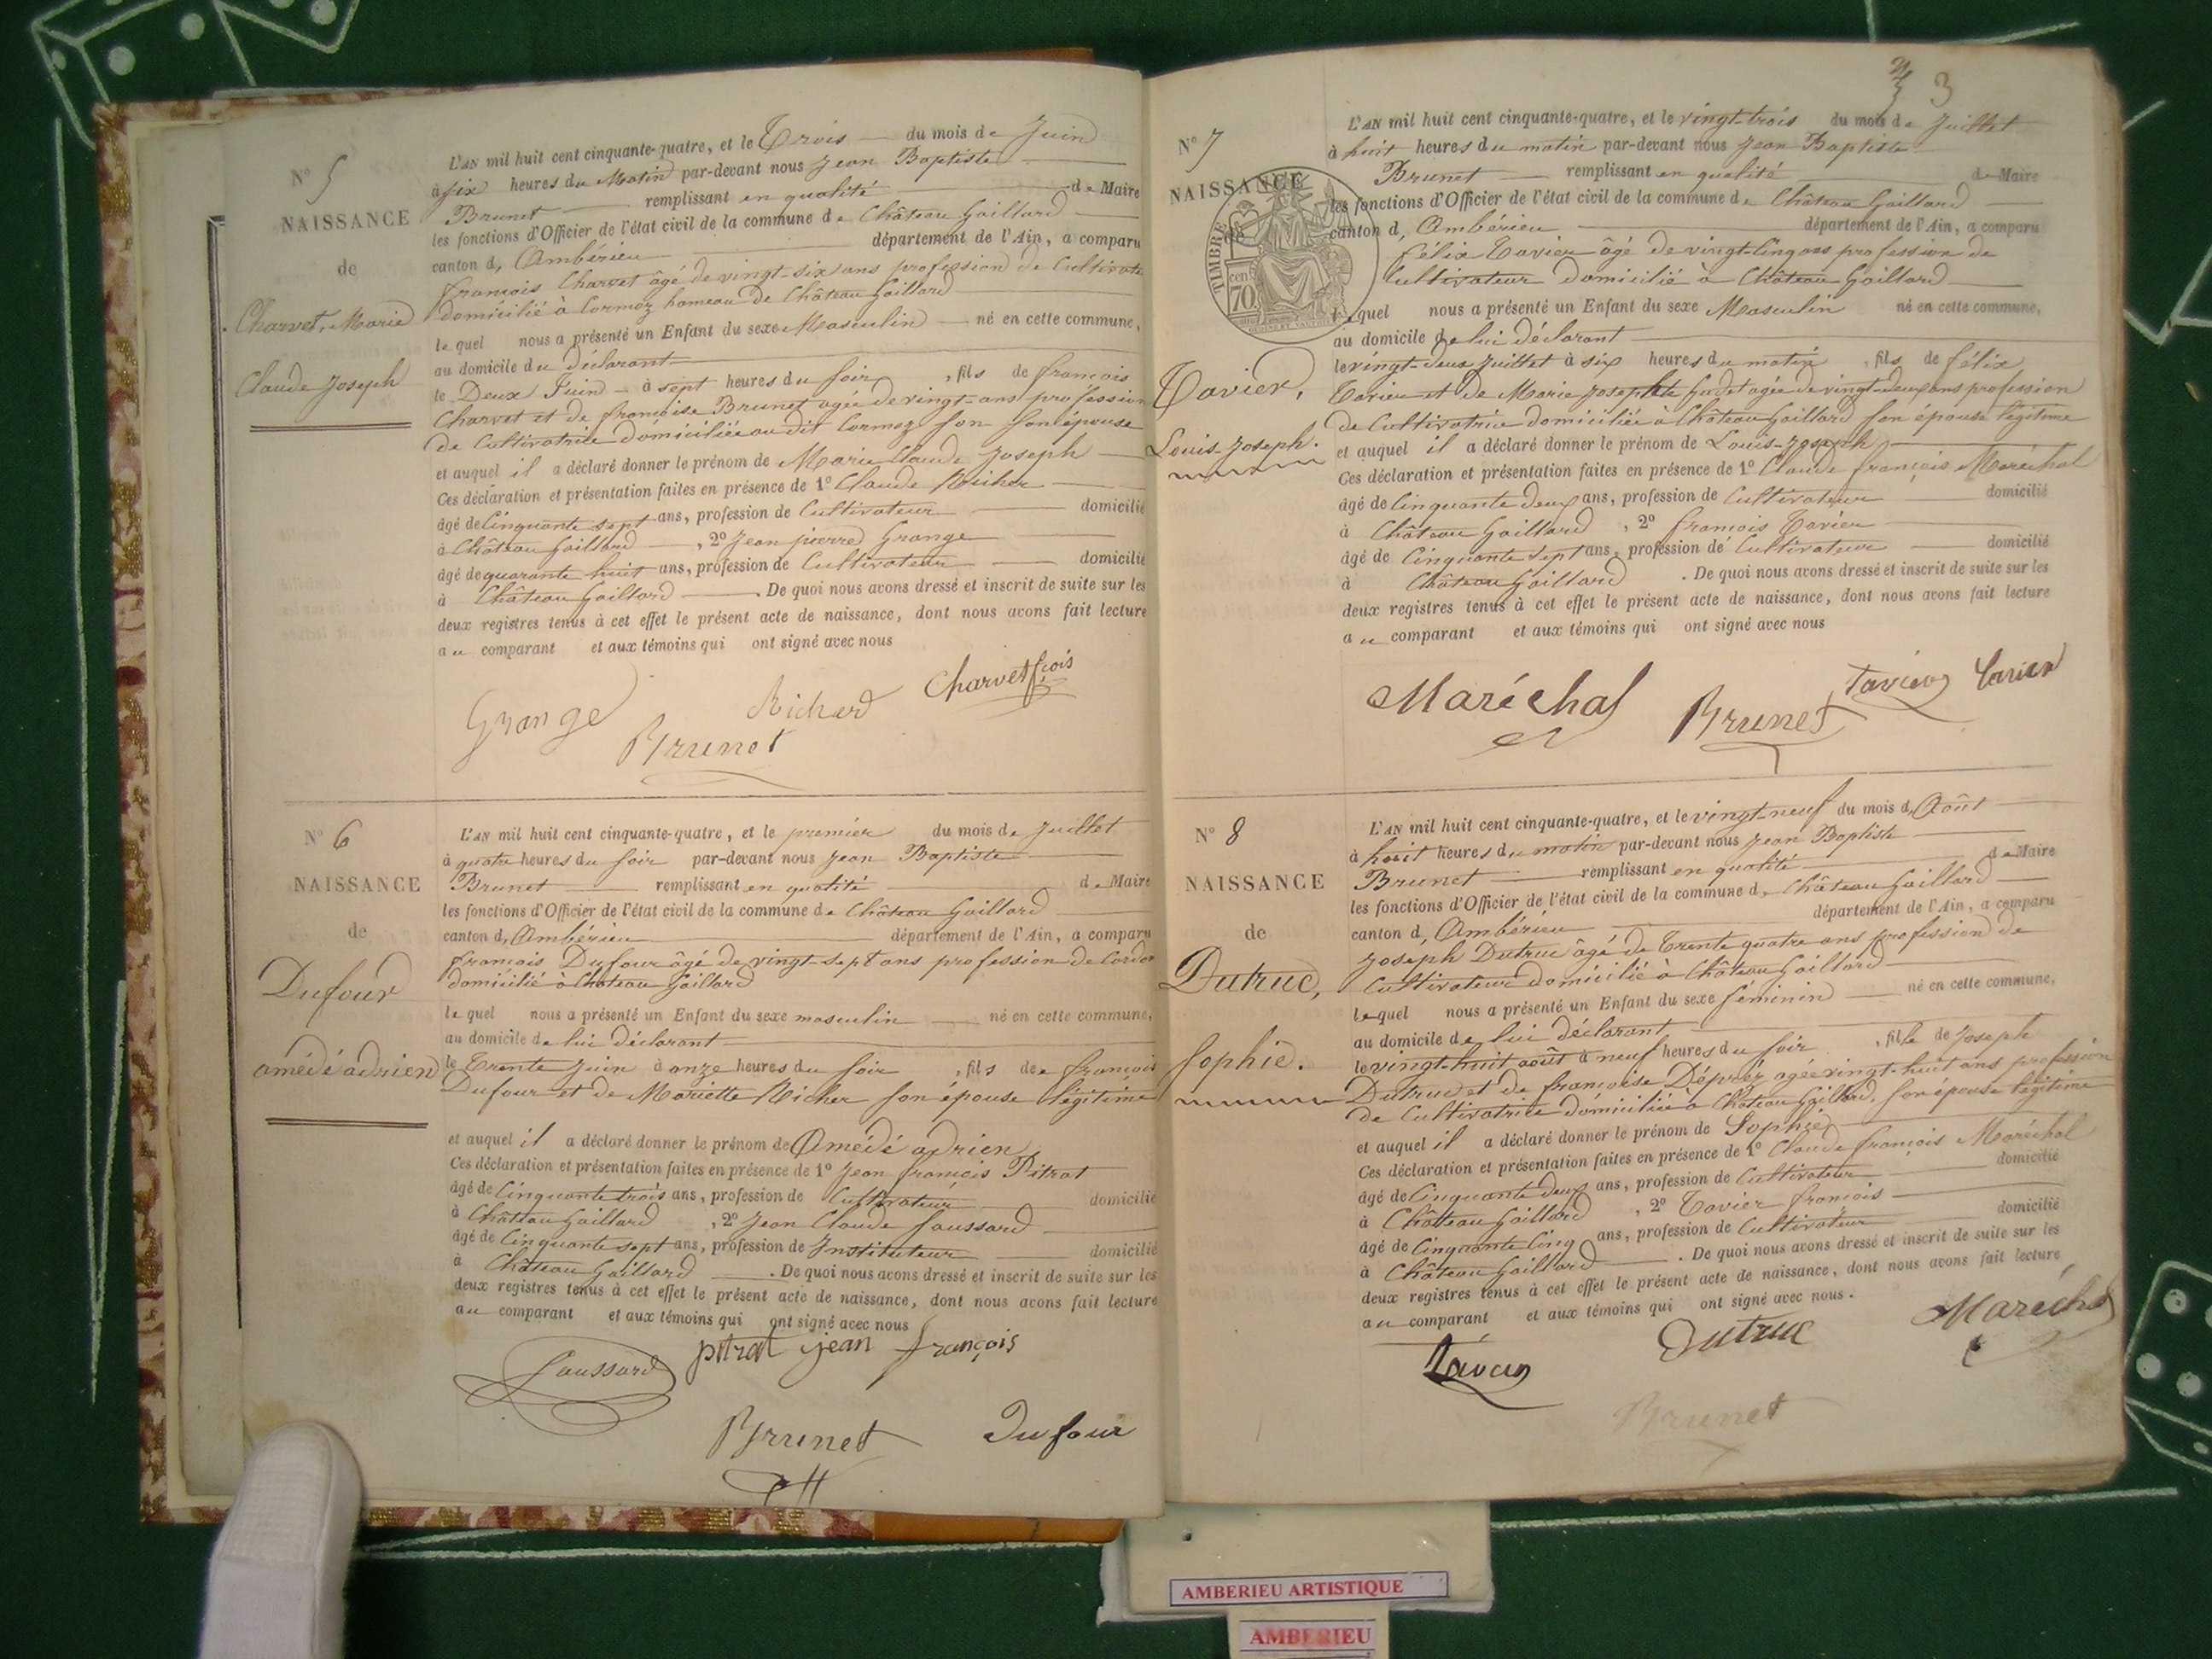 N° 5
NAISSANCE
de
Charvet, Marie
Claude Joseph
L'AN mil huit cent cinquante-quatre, et le Trois du mois de Juin
à six heures du Matin par-devant nous Jean Baptiste
Brunet remplissant en qualité de Maire
les fonctions d'Officier de l'état civil de la commune de Château Gaillard
canton d, Ambérieu département de l'Ain, a comparu
françois Charvet âgé de vingt-six ans profession de Cultivate
domicilié à Cormoz hameau de Château Gaillard
lequel nous a présenté un Enfant du sexe Masculin né en cette commune,
au domicile du déclarant
le Deux Juin à sept heures du soir, fils de françois
Charvet et de françoise Brunet agée de vingt-ans profession
de Cultivatrice domiciliée au dit Cormoz son son épouse
et auquel il a déclaré donner le prénom de Marie Claude Joseph
Ces déclaration et présentation faites en présence de 1° Claude Richer
âgé de Cinquante sept ans, profession de Cultivateur domicilié
à Château Gaillard, 2° Jean pierre Grange
âgé de quarante huit ans, profession de Cultivateur domicilié
à Château Gaillard. De quoi nous avons dressé et inscrit de suite sur les
deux registres tenus à cet effet le présent acte de naissance, dont nous avons fait lecture
au comparant et aux témoins qui ont signé avec nous
Grange Richerd Charvet fçois
Brunet
N° 6
NAISSANCE
de
Dufour
amédé adrien
L'AN mil huit cent cinquante-quatre, et le premier du mois de Juillet
à quatre heures du soir par-devant nous Jean Baptiste
Brunet remplissant en qualité de Maire
les fonctions d'Officier de l'état civil de la commune de Château Gaillard
canton d, Ambérieu département de l'Ain, a comparu
françois Dufour âgé de vingt-sept ans profession de Cordon
domicilié à Château Gaillard
lequel nous a présenté un Enfant du sexe masculin né en cette commune,
au domicile de lui déclarant
le Trente Juin à onze heures du soir, fils de françois
Dufour et de Mariette Richer son épouse légitime
et auquel il a déclaré donner le prénom de Amédé adrien
Ces déclaration et présentation faites en présence de 1° Jean françois Pitrat
âgé de Cinquante trois ans, profession de Cultivateur domicilié
à Château Gaillard, 2° Jean Claude Saussard
âgé de Cinquante sept ans, profession de Instituteur domicilié
à Château Gaillard. De quoi nous avons dressé et inscrit de suite sur les
deux registres tenus à cet effet le présent acte de naissance, dont nous avons fait lecture
au comparant et aux témoins qui ont signé avec nous
Saussard pitrat jean françois
Brunet Dufour
3
N° 7
NAISSANCE
de
TIMBRE
70 cen
Tavier,
Louis-Joseph.
L'AN mil huit cent cinquante-quatre, et le vingt-trois du mois de Juillet
à huit heures du matin par-devant nous Jean Baptiste
Brunet remplissant en qualité de Maire
les fonctions d'Officier de l'état civil de la commune de Château Gaillard
canton d, Ambérieu département de l'Ain, a comparu
félix Tavier âgé de vingt-cinq ans profession de
Cultivateur domicilié à Château Gaillard
lequel nous a présenté un Enfant du sexe Masculin né en cette commune,
au domicile de lui déclarant
le vingt-deux Juillet à six heures du matin, fils de félix
Tavier et de Marie Josephte Gudet agée de vingt-deux ans profession
de Cultivatrice domiciliée à Château Gaillard son épouse légitime
et auquel il a déclaré donner le prénom de Louis-Joseph
Ces déclaration et présentation faites en présence de 1° Claude françois Maréchal
âgé de Cinquante deux ans, profession de Cultivateur domicilié
à Château Gaillard, 2° françois Tavier
âgé de Cinquante sept ans, profession de Cultivateur domicilié
à Château Gaillard. De quoi nous avons dressé et inscrit de suite sur les
deux registres tenus à cet effet le présent acte de naissance, dont nous avons fait lecture
au comparant et aux témoins qui ont signé avec nous
Maréchal Brunet Tavier Tavier
N° 8
NAISSANCE
de
Dutruc,
Sophie.
L'AN mil huit cent cinquante-quatre, et le vingt-neuf du mois d, Août
à huit heures du matin par-devant nous Jean Baptiste
Brunet remplissant en qualité de Maire
les fonctions d'Officier de l'état civil de la commune d, Château Gaillard
canton d, Ambérieu département de l'Ain, a comparu
Joseph Dutruc âgé de Trente quatre ans profession de
Cultivateur domicilié à Château Gaillard
lequel nous a présenté un Enfant du sexe féminin né en cette commune,
au domicile de lui déclarant
le vingt-huit août à neuf heures du soir, fille de Joseph
Dutruc et de françoise Dépréz agée vingt-huit ans profession
de Cultivatrice domiciliée à Château Gaillard, son épouse légitime
et auquel il a déclaré donner le prénom de Sophie
Ces déclaration et présentation faites en présence de 1° Claude françois Maréchal
âgé de Cinquante deux ans, profession de Cultivateur domicilié
à Château Gaillard, 2° Tavier françois
âgé de Cinquante Cinq ans, profession de Cultivateur domicilié
à Château Gaillard. De quoi nous avons dressé et inscrit de suite sur les
deux registres tenus à cet effet le présent acte de naissance, dont nous avons fait lecture
au comparant et aux témoins qui ont signé avec nous.
Tavier Dutruc Maréchal
Brunet
AMBERIEU ARTISTIQUE
AMBERIEU